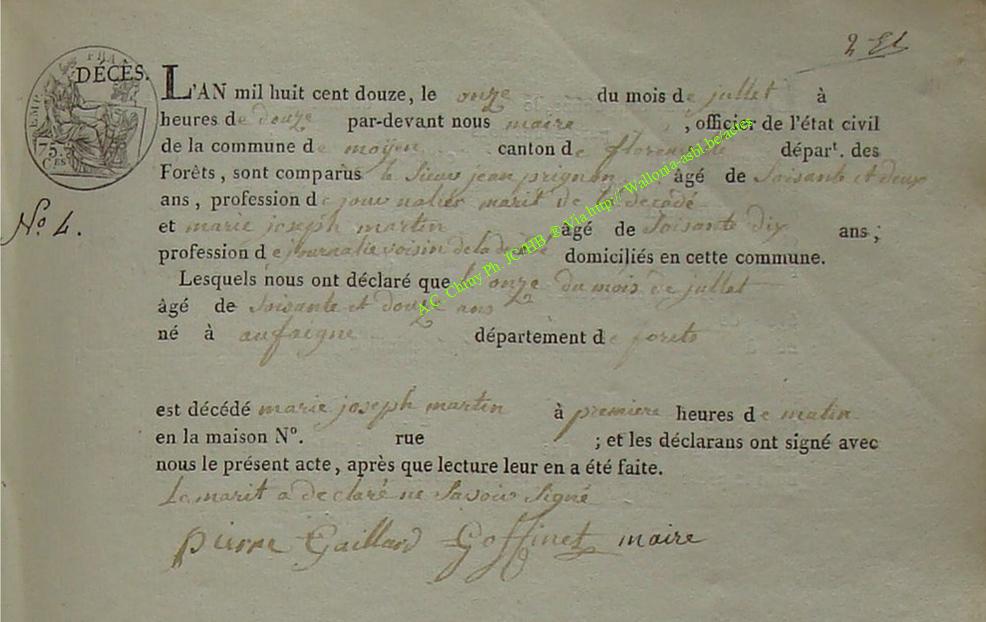 2
FRA
EMP
75.
CES
DÉCÈS.
L'AN mil huit cent douze, le onze du mois de jullet à
heures de douze par-devant nous maire, officier de l'état civil
de la commune de moyen canton de florenville départ. des
Forêts, sont comparus le Sieur jean prignon âgé de Soisante et deux
ans, profession de journalier marit de la décédé
No. 4.
et marie joseph martin âgé de Soisante dix ans;
profession de journalie voisin de la domiciliés en cette commune.
Lesquels nous ont déclaré que l'onze du mois de jullet
âgé de Soisante et douze ans
né à aufaigne département de forets
est décédé marie joseph martin à premiere heures de matin
en la maison No. rue ; et les déclarans ont signé avec
nous le présent acte, après que lecture leur en a été faite.
Le marit a declaré ne Savoir Signé
pierre Gaillard Goffinet maire
A.C. Chiny Ph. JC-HB @ Via http:// Wallonia-asbl.be/actes